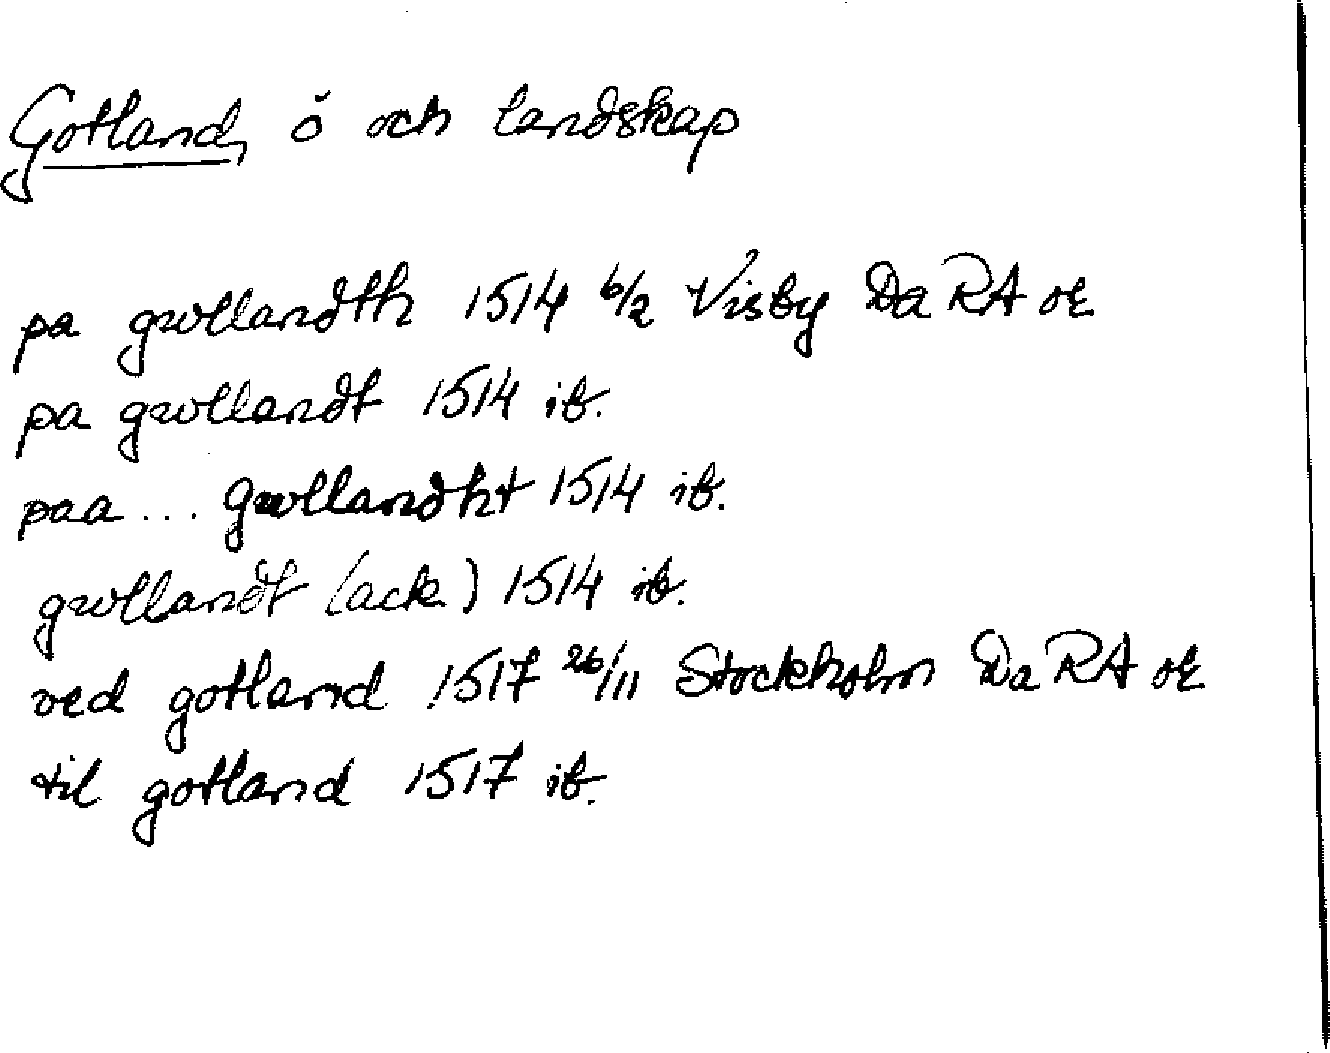 Gotland, ö och landskap
pa gwllandth 1514 6/2 Visby Da RA or
pa gwllandt 1514 ib.
paa ... Gwllandht 1514 ib.
gwllandt (ack) 1514 ib.
ved gotland 1517 26/11 Stockholm Da RA or
til gotland 1517 ib.